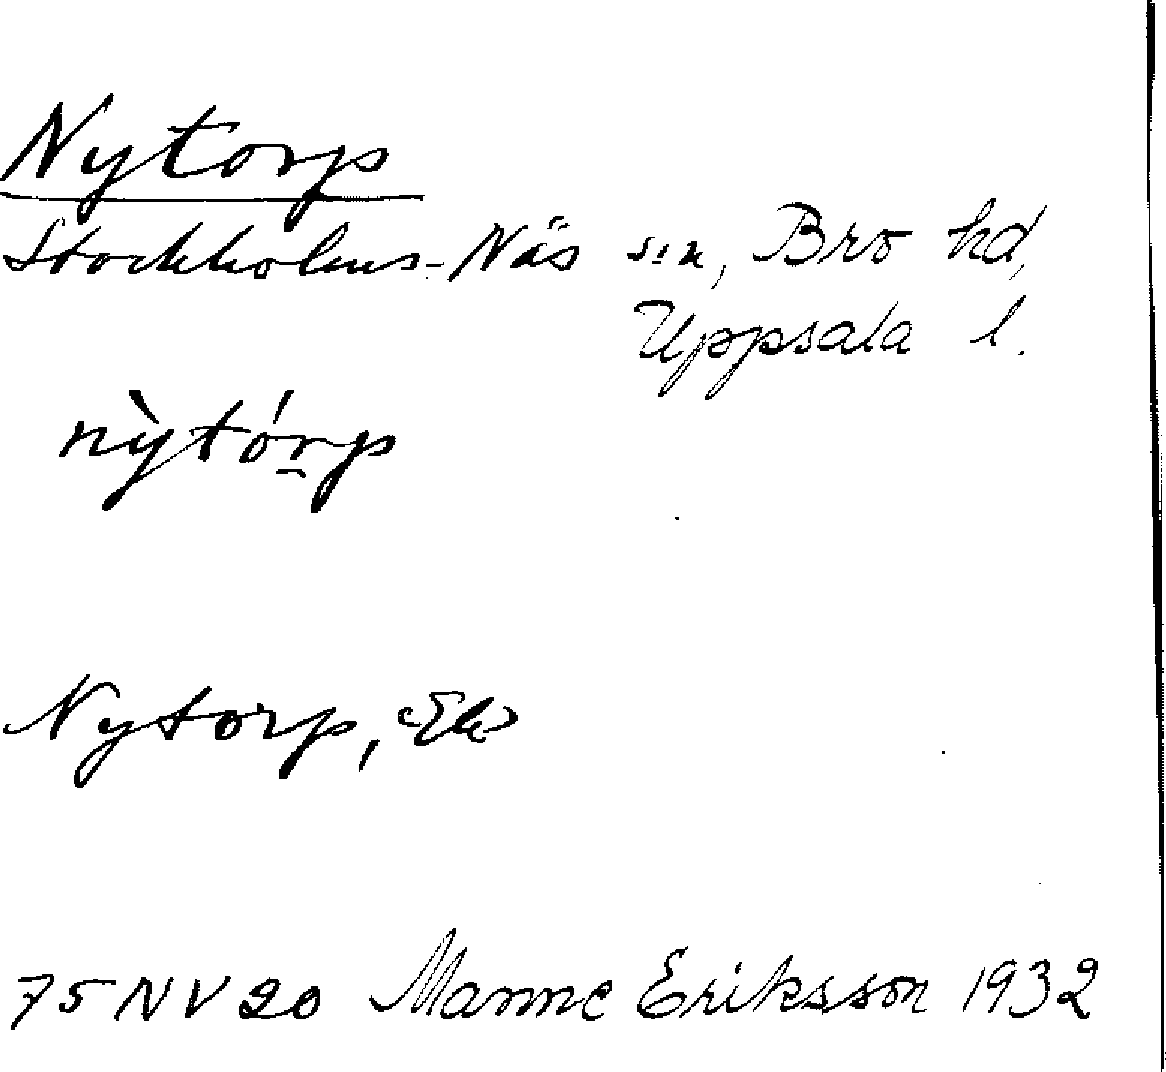 Nytorp
Stockholms-Näs sn, Bro hd,
Uppsala l.
nỳtórp
Nytorp, <Ek>
75 NV 20 Manne Eriksson 1932